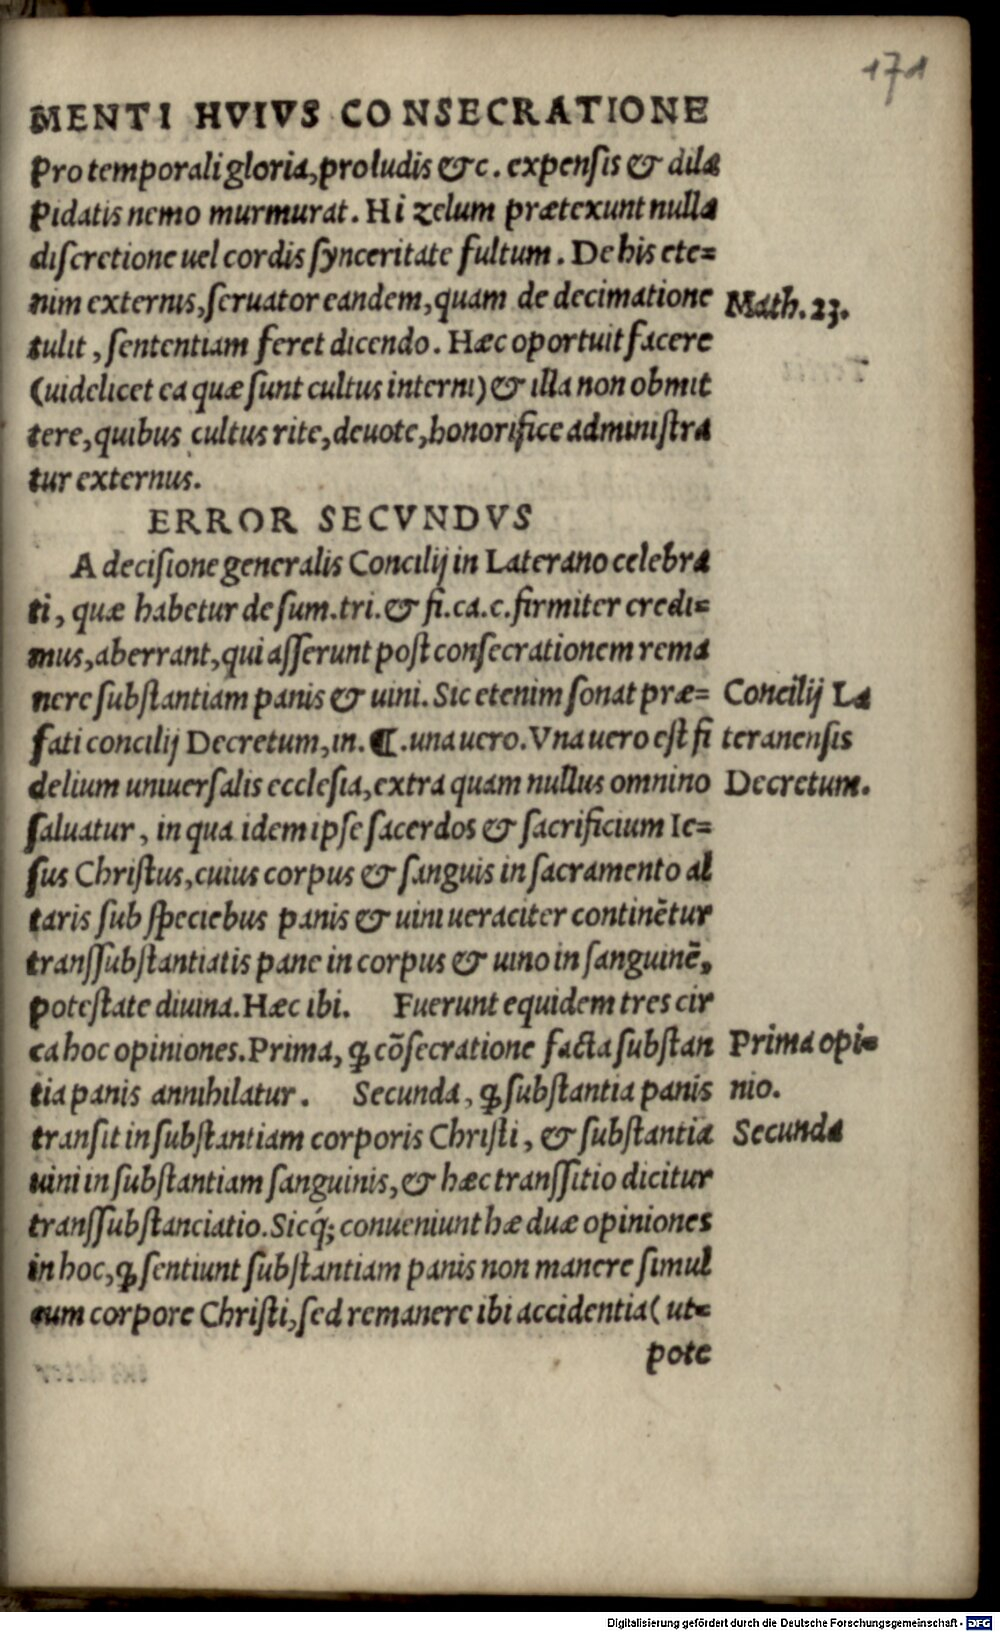 171
MENTI HVIVS CONSECRATIONE
Pro temporali gloria, pro ludis &c. expensis & dila
pidatis nemo murmurat. Hi zelum prætexunt nulla
discretione uel cordis synceritate fultum. De his ete=
nim externis, seruator eandem, quam de decimatione
Math. 23.
tulit, sententiam feret dicendo. Hæc oportuit facere
(uidelicet ea quæ sunt cultus interni) & illa non obmit
tere, quibus cultus rite, deuote, honorifice administra
tur externus.
ERROR SECVNDVS
A decisione generalis Concilij in Laterano celebra
ti, quæ habetur de sum. tri. & fi. ca. c. firmiter credi=
mus, aberrant, qui asserunt post consecrationem rema
nere substantiam panis & uini. Sic etenim sonat præ=
Concilij La
fati concilij Decretum, in. ¶. una uero. Vna uero est fi
teranensis
delium uniuersalis ecclesia, extra quam nullus omnino
Decretum.
saluatur, in qua idem ipse sacerdos & sacrificium Ie=
sus Christus, cuius corpus & sanguis in sacramento al
taris sub speciebus panis & uini ueraciter continẽtur
transsubstantiatis pane in corpus & uino in sanguinẽ,
potestate diuina. Hæc ibi. Fuerunt equidem tres cir
ca hoc opiniones. Prima, ꝙ cõsecratione facta substan
Prima opi=
tia panis annihilatur. Secunda, ꝙ substantia panis
nio.
transit in substantiam corporis Christi, & substantia
Secunda
uini in substantiam sanguinis, & hæc transsitio dicitur
transsubstanciatio. Sicq́; conueniunt hæ duæ opiniones
in hoc, ꝙ sentiunt substantiam panis non manere simul
cum corpore Christi, sed remanere ibi accidentia (ut=
pote
Digitalisierung gefördert durch die Deutsche Forschungsgemeinschaft - DFG